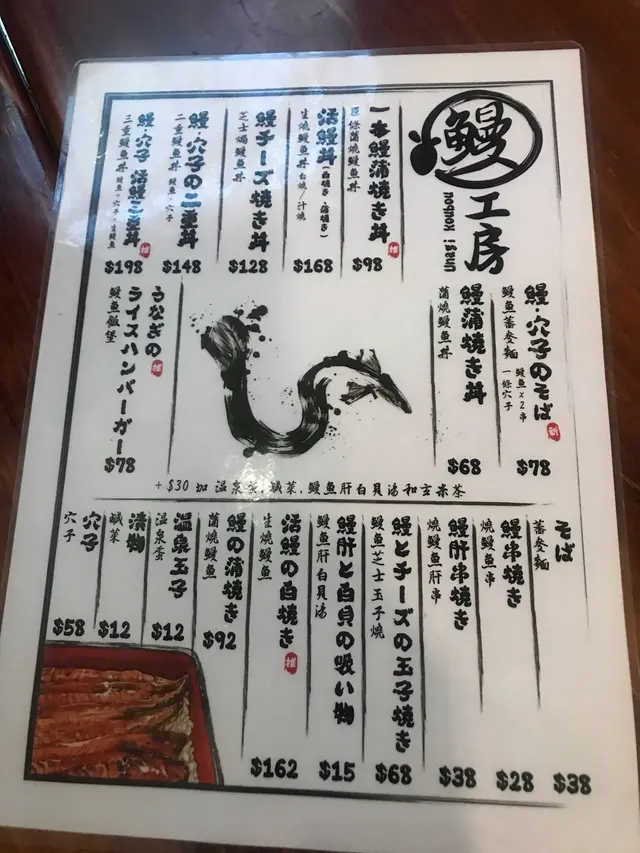 鰻
工房
Unagi Koubou
一本鰻蒲焼き丼
原條蒲燒鰻魚丼
推
$98
活鰻丼(白焼き・蒲焼き)
生燒鰻魚丼 白燒/汁燒
$168
鰻チーズ焼き丼
芝士焗鰻魚丼
$128
鰻・穴子の二重丼
二重鰻魚丼 鰻魚・穴子
$148
鰻・穴子・活鰻三重丼
三重鰻魚丼 鰻魚・穴子・生鰻魚
推
$198
鰻・穴子のそば
鰻魚蕎麥麵 鰻魚x2串 一條穴子
新
$78
鰻蒲焼き丼
蒲燒鰻魚丼
$68
うなぎの
ライスハンバーガー
鰻魚飯堡
推
$78
+$30 加溫泉蛋,鹹菜,鰻魚肝白貝湯和玄米茶
そば
蕎麥麵
$38
鰻串焼き
燒鰻魚串
$28
鰻肝串焼き
燒鰻魚肝串
$38
鰻とチーズの玉子焼き
鰻魚芝士玉子燒
$68
鰻肝と白貝の吸い物
鰻魚肝白貝湯
$15
活鰻の白焼き
生燒鰻魚
推
$162
鰻の蒲焼き
蒲燒鰻魚
$92
温泉玉子
溫泉蛋
$12
漬物
鹹菜
$12
穴子
穴子
$58